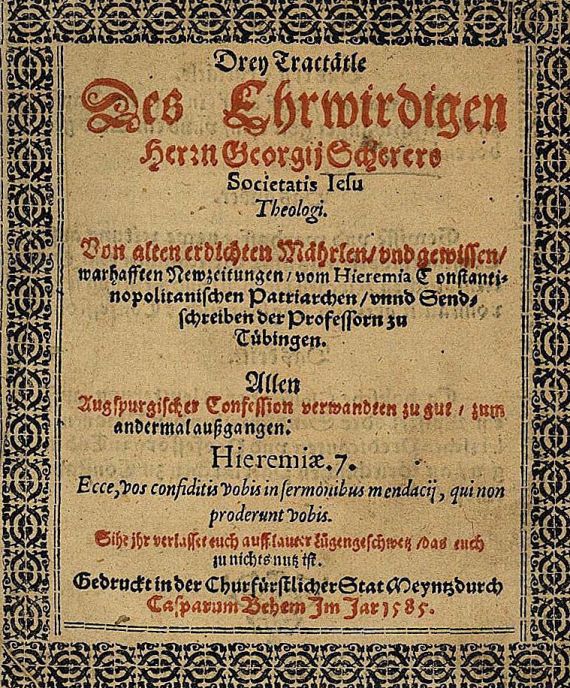 Drey Tractätle
Des Ehrwirdigen
Herrn Georgij Scherers
Societatis Iesu
Theologi.
Von alten erdichten Mährlen/ vnd gewissen/
warhafften Newzeitungen/ vom Hieremia Constanti-
nopolitanischen Patriarchen/ vnnd Send-
schreiben der Professorn zu
Tübingen.
Allen
Augspurgischer Confession verwandten zu gut/ zum
andermal außgangen.
Hieremiæ. 7.
Ecce, vos confiditis vobis in sermonibus mendacij, qui non
proderunt vobis.
Sihe jhr verlasset euch auff lauter lügengeschwetz/ das euch
zu nichts nutz ist.
Gedruckt in der Churfürstlicher Stat Meyntz durch
Casparum Behem Im Jar 1585.